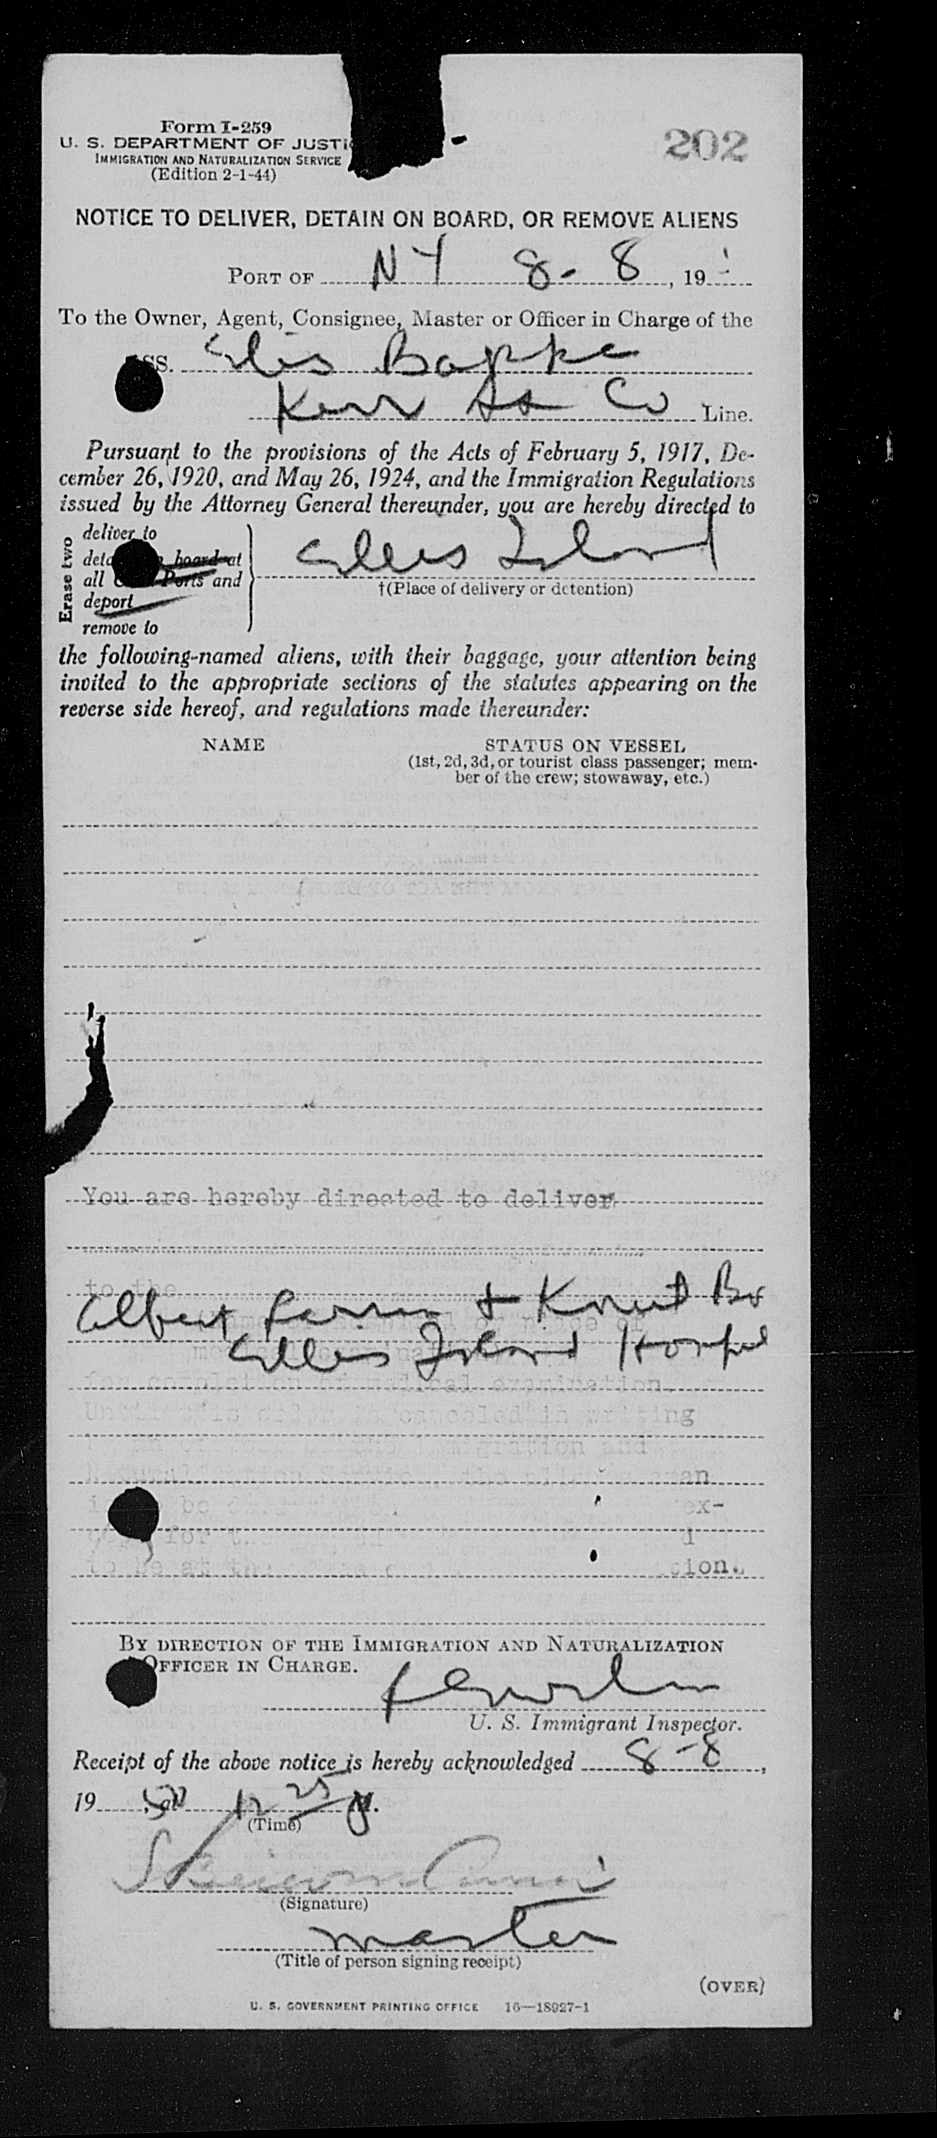 Form I-259
U. S. DEPARTMENT OF JUSTI
IMMIGRATION AND NATURALIZATION SERVICE
(Edition 2-1-44)
202
NOTICE TO DELIVER, DETAIN ON BOARD, OR REMOVE ALIENS
PORT OF NY 8-8, 19
To the Owner, Agent, Consignee, Master or Officer in Charge of the
SS. Bakke
Kerr SS Co Line.
Pursuant to the provisions of the Acts of February 5, 1917, De-
cember 26, 1920, and May 26, 1924, and the Immigration Regulations
issued by the Attorney General thereunder, you are hereby directed to
Erase two
deliver to
board at
all Ports and
deport
remove to
Ellis Island
†(Place of delivery or detention)
the following-named aliens, with their baggage, your attention being
invited to the appropriate sections of the statutes appearing on the
reverse side hereof, and regulations made thereunder:
NAME
STATUS ON VESSEL
(1st, 2d, 3d, or tourist class passenger; mem-
ber of the crew; stowaway, etc.)
You are hereby directed to deliver
to the
Albert + Knut
Ellis Island
medical examination.
Until this order is canceled in writing
Immigration and
be ex-
for
to be at the tion.
BY DIRECTION OF THE IMMIGRATION AND NATURALIZATION
OFFICER IN CHARGE.
U. S. Immigrant Inspector.
Receipt of the above notice is hereby acknowledged 8-8,
19 50, at 12 25 M.
(Time)
(Signature)
master
(Title of person signing receipt)
(OVER)
U. S. GOVERNMENT PRINTING OFFICE 16—18927-1